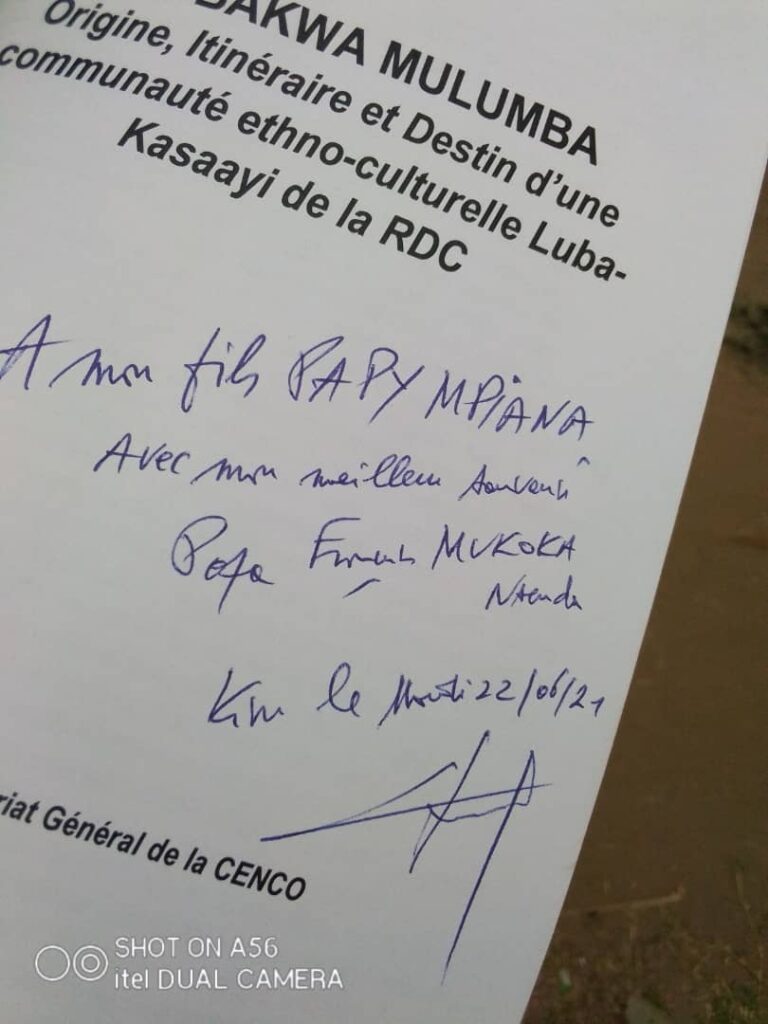 BAKWA MULUMBA
Origine, Itinéraire et Destin d'une
communauté ethno-culturelle Luba-
Kasaayi de la RDC
A mon fils PAPY MPIANA
Avec mon meilleur souvenir
Papa MUKOKA
Kin le Mardi 22/06/21
riat Général de la CENCO
SHOT ON A56
itel DUAL CAMERA